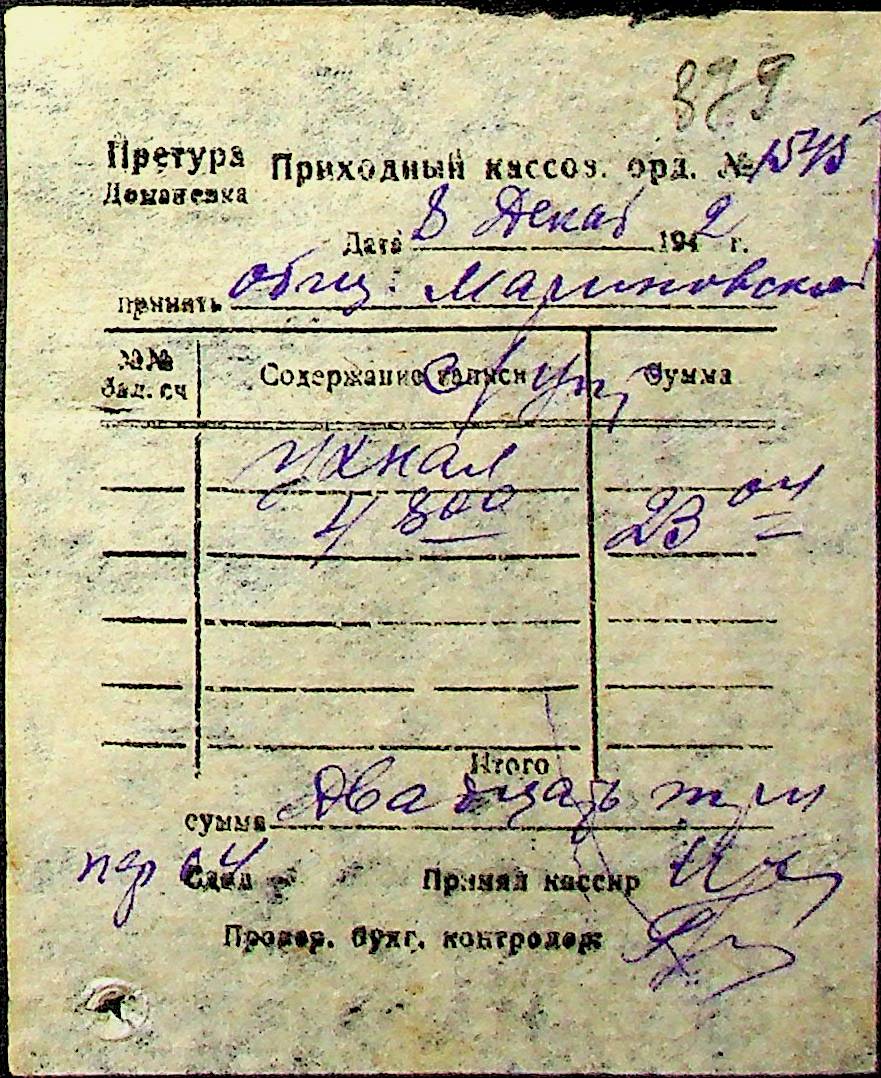 879
Претура Приходный кассов. орд. № 1545
Доманевка
Дата 8 Декаб 1942 г.
принять общ. Мариновской
№№ Содержание записи Сумма
бал. сч
ухнал
4 800 23 04
Итого
сумма Двадцать три
04
Сдал Принял кассир
Провер. бухг. контролер